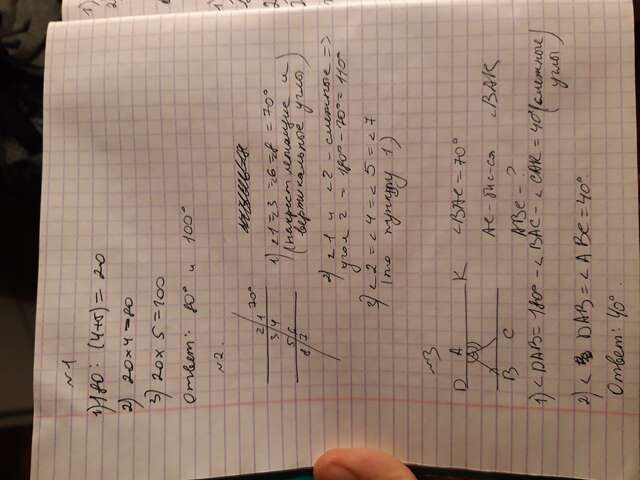 №1
1) 180 : (4+5) = 20
2) 20×4=80
3) 20×5=100
Ответ: 80° и 100°
№2.
2 1 70°
3 4
5 6
8 7
1) ∠1=∠3=∠6=∠8=70°
(накрест лежащие и
вертикальные углы)
2) ∠1 и ∠2 - смежные =>
угол 2 = 180°-70°=110°
3) ∠2=∠4=∠5=∠7
(по пункту 1)
№3
D A K
B C
∠BAC=70°
AC-бис-са ∠BAK
ABC-?
1) ∠DAB=180°-∠BAC-∠CAK=40° (смежные
углы)
2) ∠ DAB=∠ABC=40°.
Ответ: 40°.